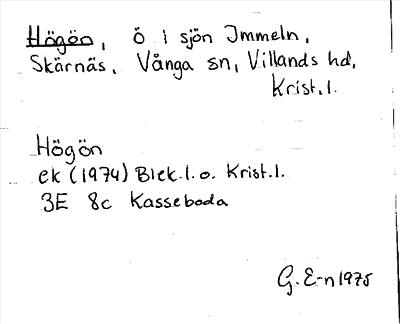 Högön, ö i sjön Immeln,
Skärnäs, Vånga sn, Villands hd,
Krist. l.
Högön
ek (1974) Blek. l. o. Krist. l.
3E 8c Kasseboda
G. E-n 1975